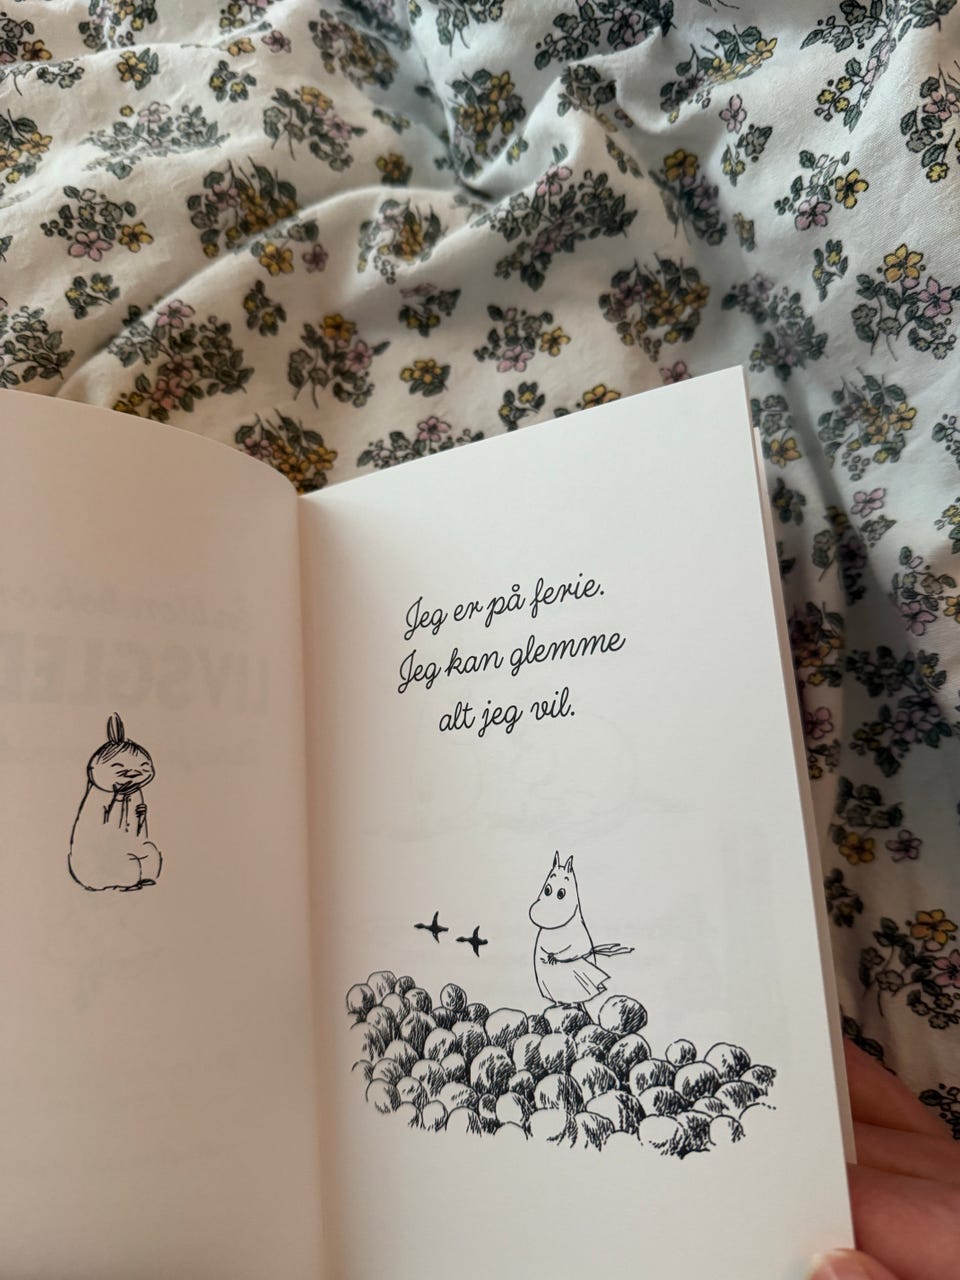 Jeg er på ferie.
Jeg kan glemme
alt jeg vil.